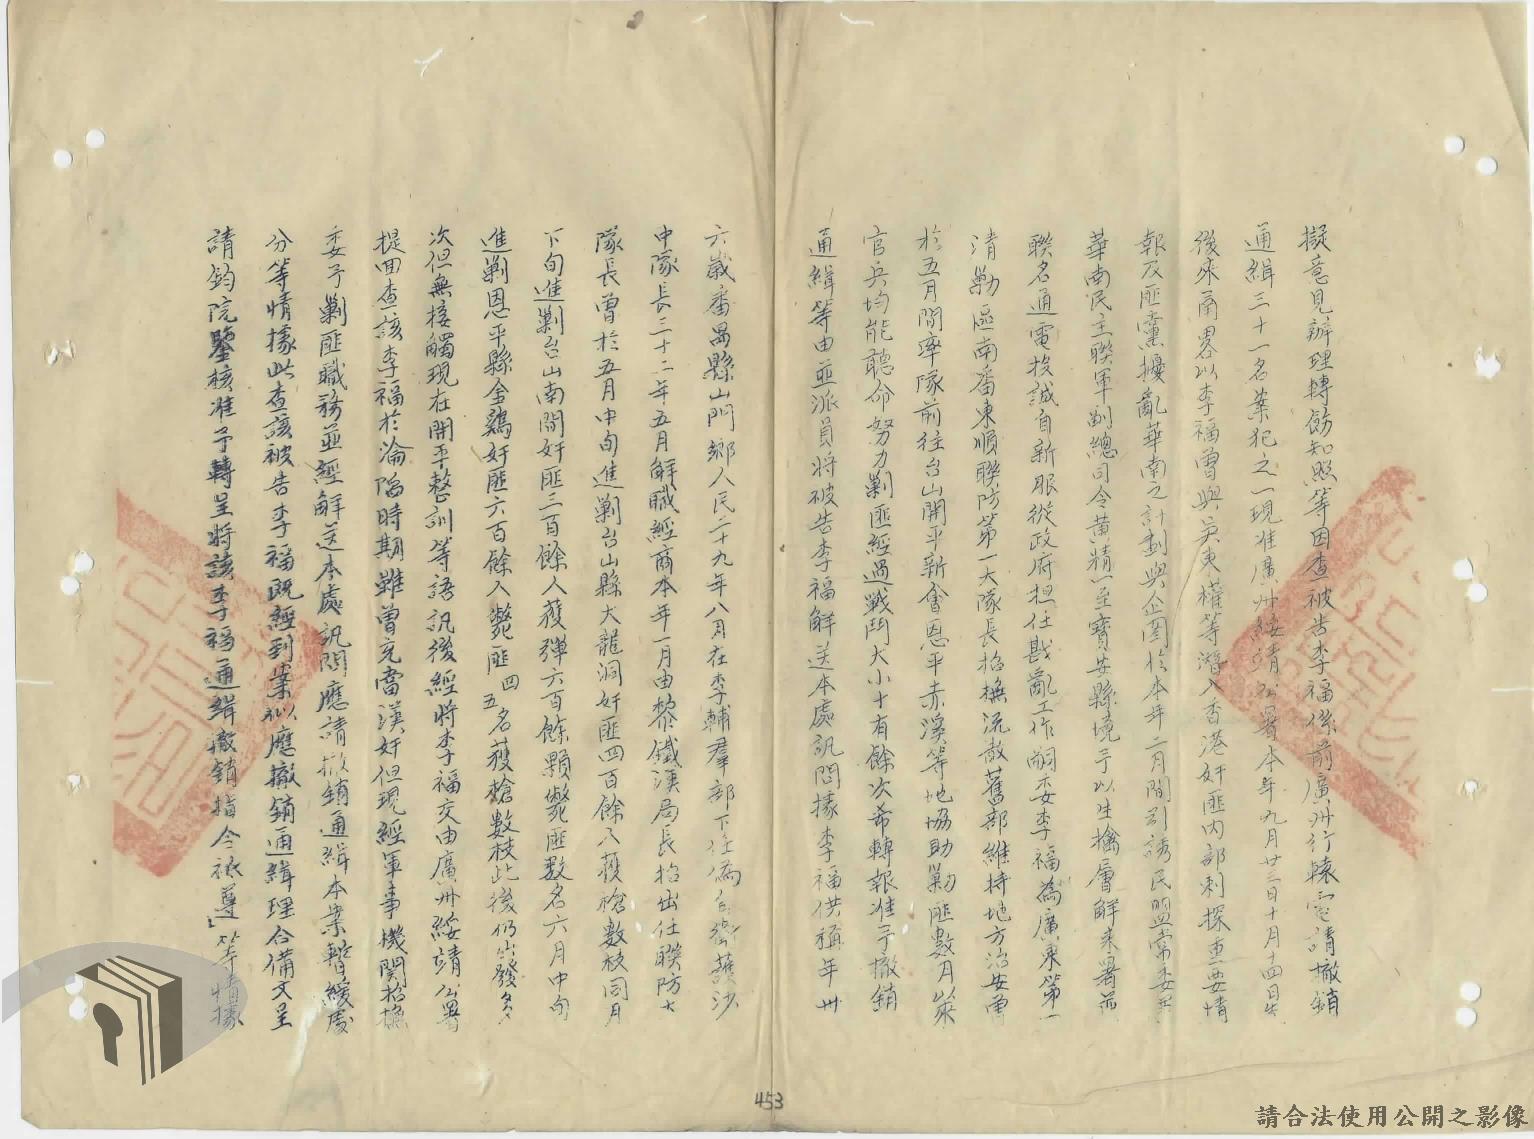 擬意見辦理轉飭知照等因查被告李福係前廣州行轅電請撤銷
通緝三十一名案犯之一現准廣州綏靖公署本年九月廿三日十月十四日先
後來兩畧以李福曾與吳東權等潛入香港奸匪內部刺探重要情
報及匪黨擾亂華南之計劃與企圖於本年二月間引誘民盟常委
華南民主聯軍副總司令黃精一至寶安縣境予以生擒層解來署並
聯名通電投誠自新服從政府担任戡亂工作嗣委李福為廣東第一
清剿區南番東順聯防第一大隊長招撫流散舊部維持地方治安曾
於五月間率隊前往台山開平新會恩平赤溪等地協助剿匪數月以來
官兵均能聽命努力剿匪經過戰鬥大小十有餘次希轉報准予撤銷
通緝等由並派員將被告李福解送本處訊問據李福供稱年卅
六歲番禺縣山門鄉人民二十九年八月在李輔羣部下任偽自衛護沙
中隊長三十二年五月解職經商本年一月由黎鐵漢局長招出任聯防大
隊長曾於五月中旬進剿台山縣大龍洞奸匪四百餘人獲槍數枝同月
下旬進剿台山南閣奸匪三百餘人獲彈六百餘顆斃匪數名六月中旬
進剿恩平縣金鷄奸匪六百餘人斃匪四五名獲槍數枝此後仍出發多
次但無接觸現在開平整訓等語訊後經將李福交由廣州綏靖公署
提回查該李福於淪陷時期雖曾充當漢奸但現經軍事機關招撫
委予剿匪職務並經解送本處訊問應請撤銷通緝本案暫緩處
分等情據此查該被告李福既經到案似應撤銷通緝理合備文呈
請鈞院鑒核准予轉呈將該李福通緝撤銷指令祗遵」等情據
453
請合法使用公開之影像